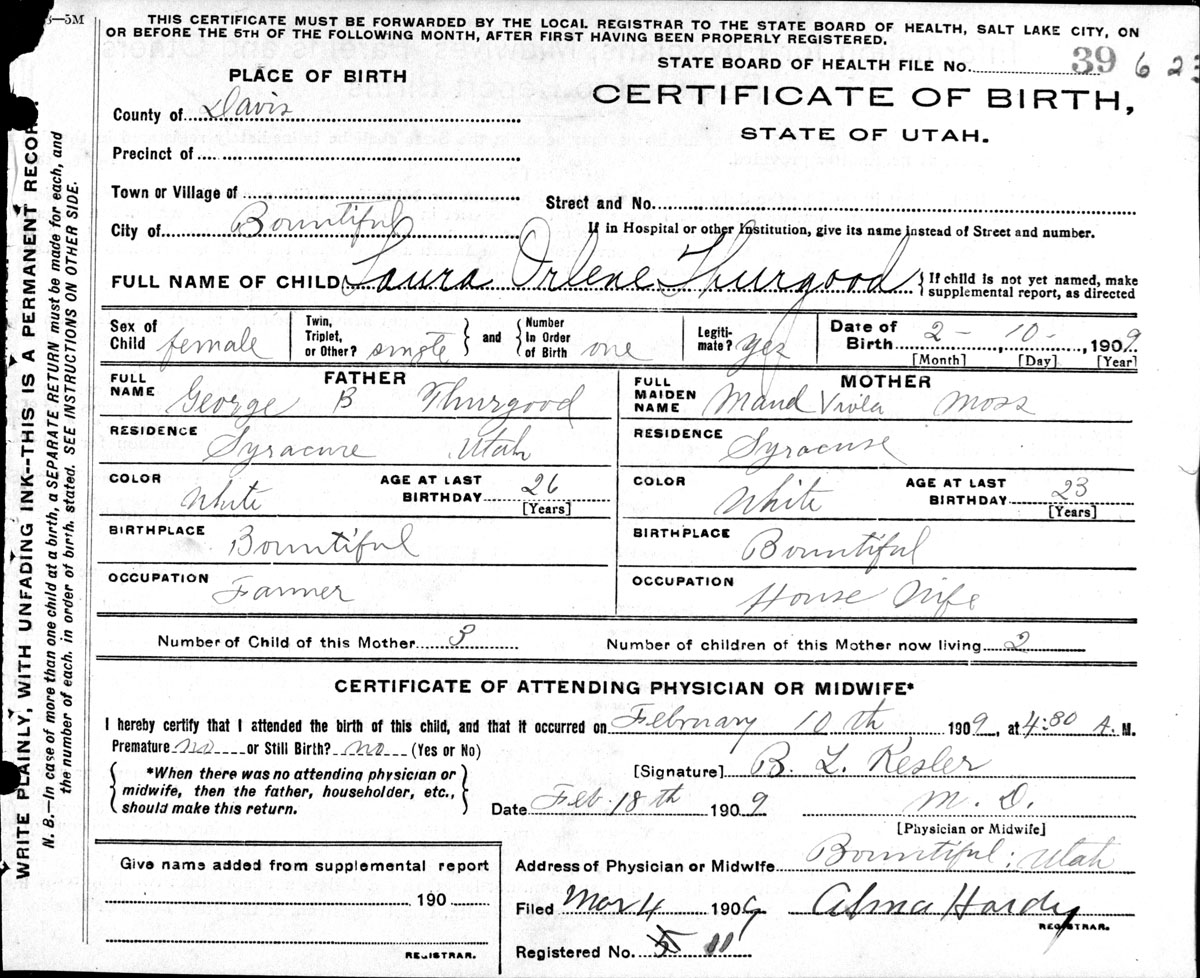 3—5M
THIS CERTIFICATE MUST BE FORWARDED BY THE LOCAL REGISTRAR TO THE STATE BOARD OF HEALTH, SALT LAKE CITY, ON
OR BEFORE THE 5TH OF THE FOLLOWING MONTH, AFTER FIRST HAVING BEEN PROPERLY REGISTERED.
STATE BOARD OF HEALTH FILE No. 39 623
PLACE OF BIRTH
CERTIFICATE OF BIRTH,
STATE OF UTAH.
County of Davis
Precinct of
Town or Village of
Street and No.
City of Bountiful
If in Hospital or other Institution, give its name instead of Street and number.
FULL NAME OF CHILD Laura Orlene Thurgood { If child is not yet named, make supplemental report, as directed
Sex of Child female
Twin, Triplet, or Other? single } and { Number In Order of Birth one
Legitimate? yes
Date of Birth 2 - 10 -, 1909
[Month] [Day] [Year]
FATHER
FULL NAME George B Thurgood
RESIDENCE Syracuse Utah
COLOR White AGE AT LAST BIRTHDAY 26
[Years]
BIRTHPLACE Bountiful
OCCUPATION Farmer
MOTHER
FULL MAIDEN NAME Maud Viola Moss
RESIDENCE Syracuse
COLOR White AGE AT LAST BIRTHDAY 23
[Years]
BIRTHPLACE Bountiful
OCCUPATION House Wife
Number of Child of this Mother 3 Number of children of this Mother now living 2
CERTIFICATE OF ATTENDING PHYSICIAN OR MIDWIFE*
I hereby certify that I attended the birth of this child, and that it occurred on February 10th 1909, at 4:30 A. M.
Premature no or Still Birth? no (Yes or No)
*When there was no attending physician or
midwife, then the father, householder, etc.,
should make this return.
[Signature] B. L. Kesler
Date Feb. 18th 1909 M. D.
[Physician or Midwife]
Give name added from supplemental report
190
REGISTRAR.
Address of Physician or Midwife Bountiful: Utah
Filed Mar 4 1909 Alma Hardy
REGISTRAR.
Registered No. 5 11
WRITE PLAINLY, WITH UNFADING INK--THIS IS A PERMANENT RECORD.
N. B.—In case of more than one child at a birth, a SEPARATE RETURN must be made for each, and
the number of each, in order of birth, stated. SEE INSTRUCTIONS ON OTHER SIDE.